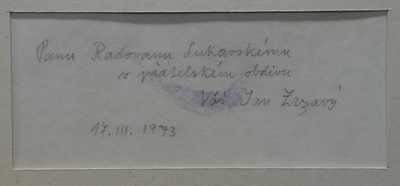 Panu Radovanu Lukavskému
v přátelském obdivu
Váš Jan Zrzavý
17. III. 1973